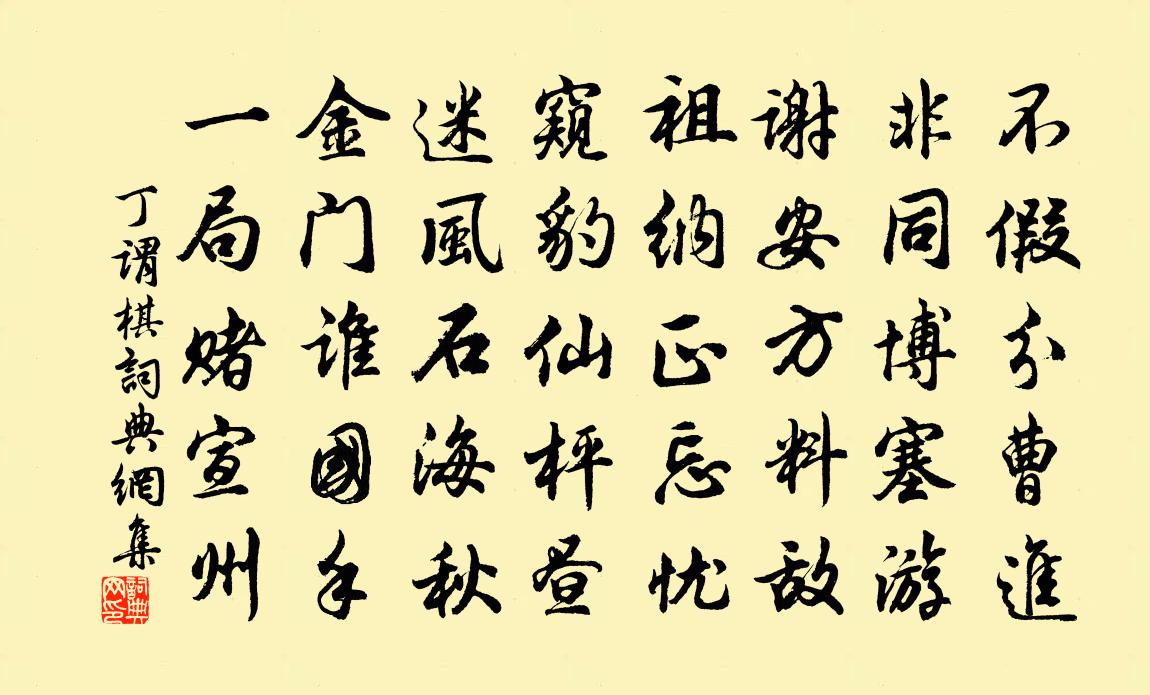 不假分曹進
非同博塞游
謝安方料敵
祖納正忘憂
窺豹仙枰昼
迷風石海秋
金門誰國手
一局賭宣州
丁謂棋詞典網集
詞典网印